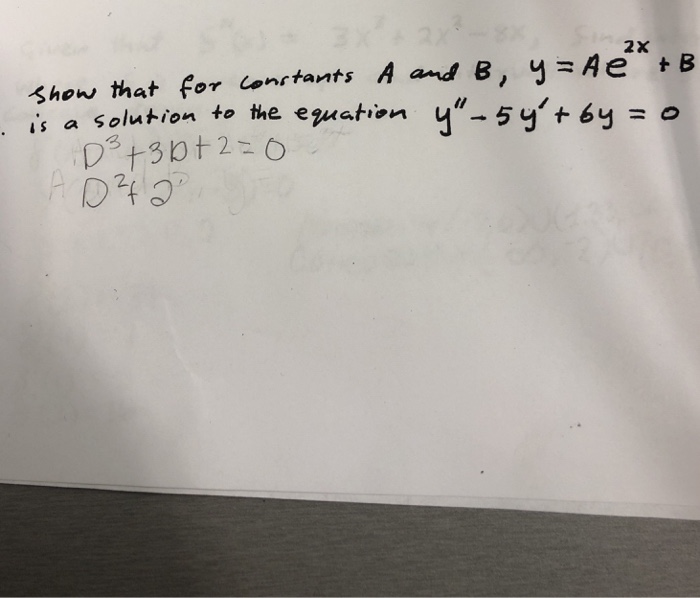 Show that for constants A and B, y = Ae^2x + B
. is a solution to the equation y" - 5y' + 6y = 0
D^3 + 3D + 2 = 0
D^2 + 2